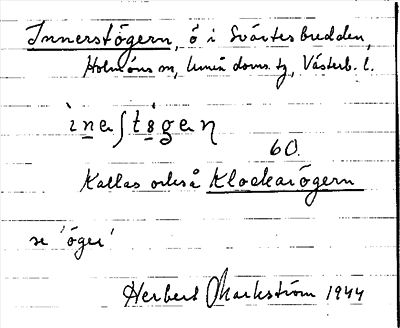 Innerstögern, ö i Svärtesbredden,
Holmöns sn, Umeå doms. tg, Västerb. l.
60.
Kallas också Klockarögern
se 'öger'
Herbert Markström 1944